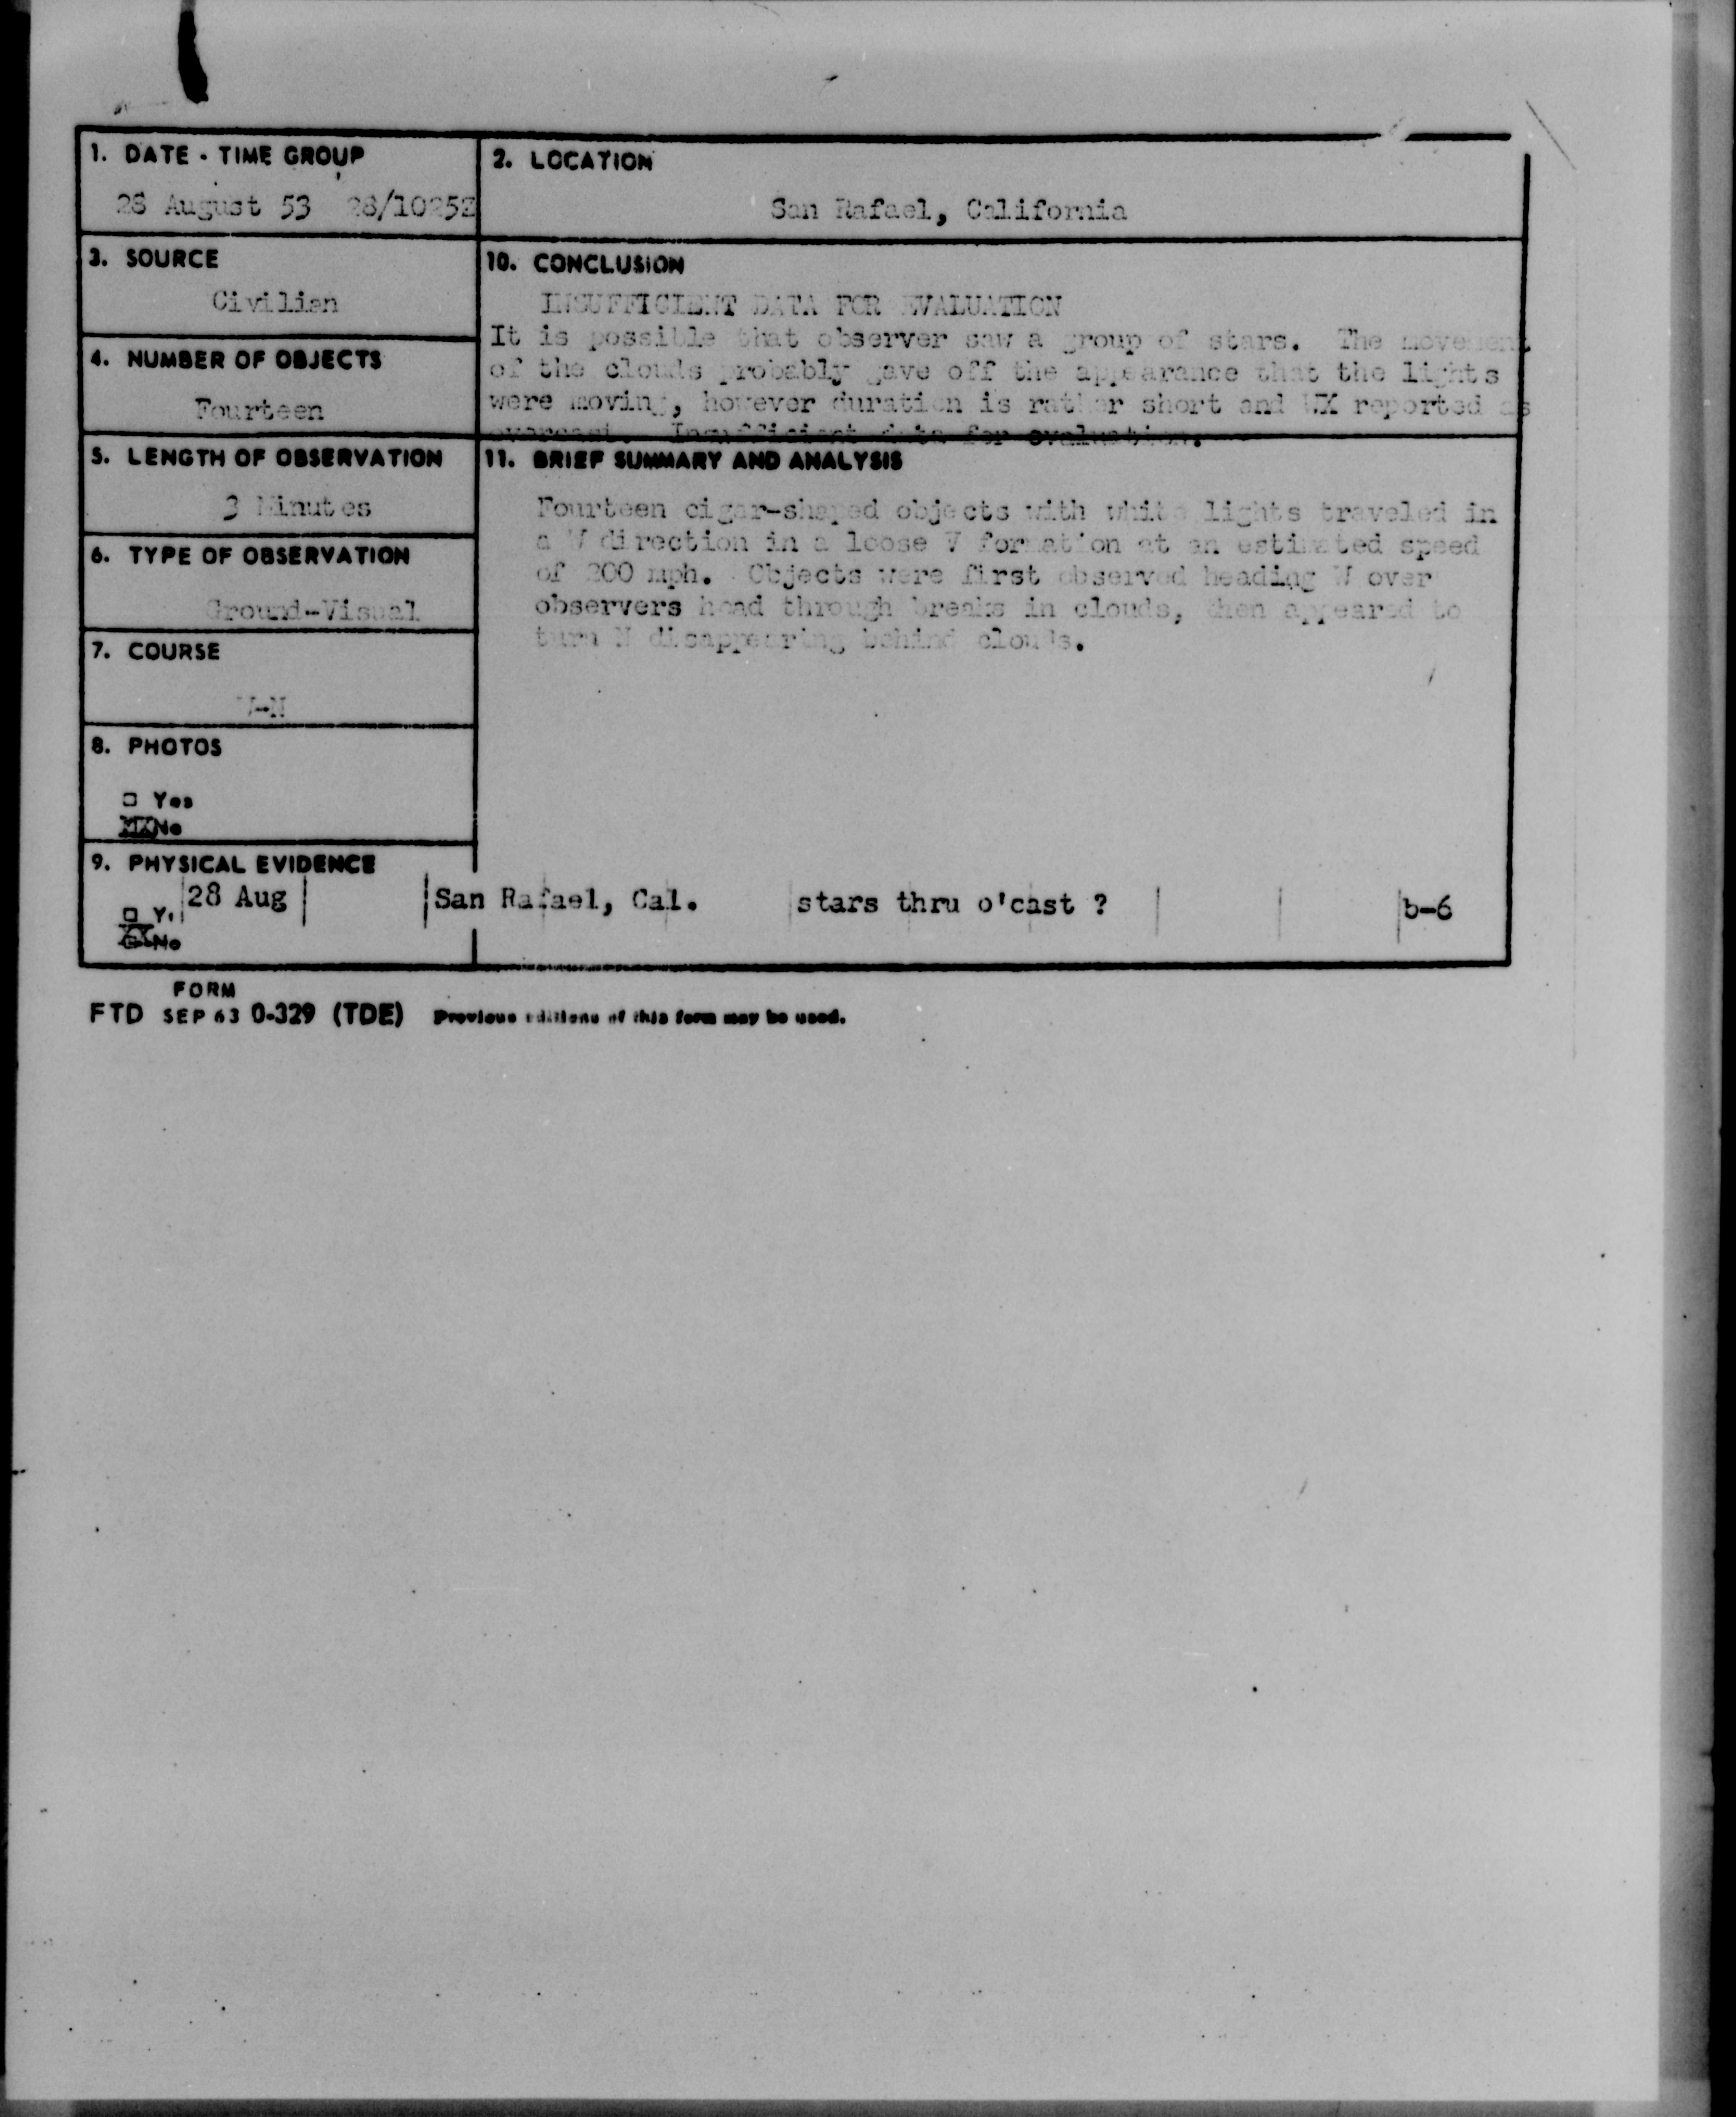 1. DATE - TIME GROUP
28 August 53 28/1025Z
2. LOCATION
San Rafael, California
3. SOURCE
Civilian
10. CONCLUSION
INSUFFICIENT DATA FOR EVALUATION
It is possible that observer saw a group of stars. The movement
of the clouds probably gave off the appearance that the lights
were moving, however duration is rather short and WX reported as
overcast. Insufficient data for evaluation.
4. NUMBER OF OBJECTS
Fourteen
5. LENGTH OF OBSERVATION
3 Minutes
11. BRIEF SUMMARY AND ANALYSIS
Fourteen cigar-shaped objects with white lights traveled in
a W direction in a loose V formation at an estimated speed
of 200 mph. Objects were first observed heading W over
observers head through breaks in clouds, then appeared to
turn N disappearing behind clouds.
6. TYPE OF OBSERVATION
Ground-Visual
7. COURSE
W-N
8. PHOTOS
Yes
No
9. PHYSICAL EVIDENCE
28 Aug San Rafael, Cal. stars thru o'cast ? b-6
No
FORM
FTD SEP 63 0-329 (TDE) Previous editions of this form may be used.